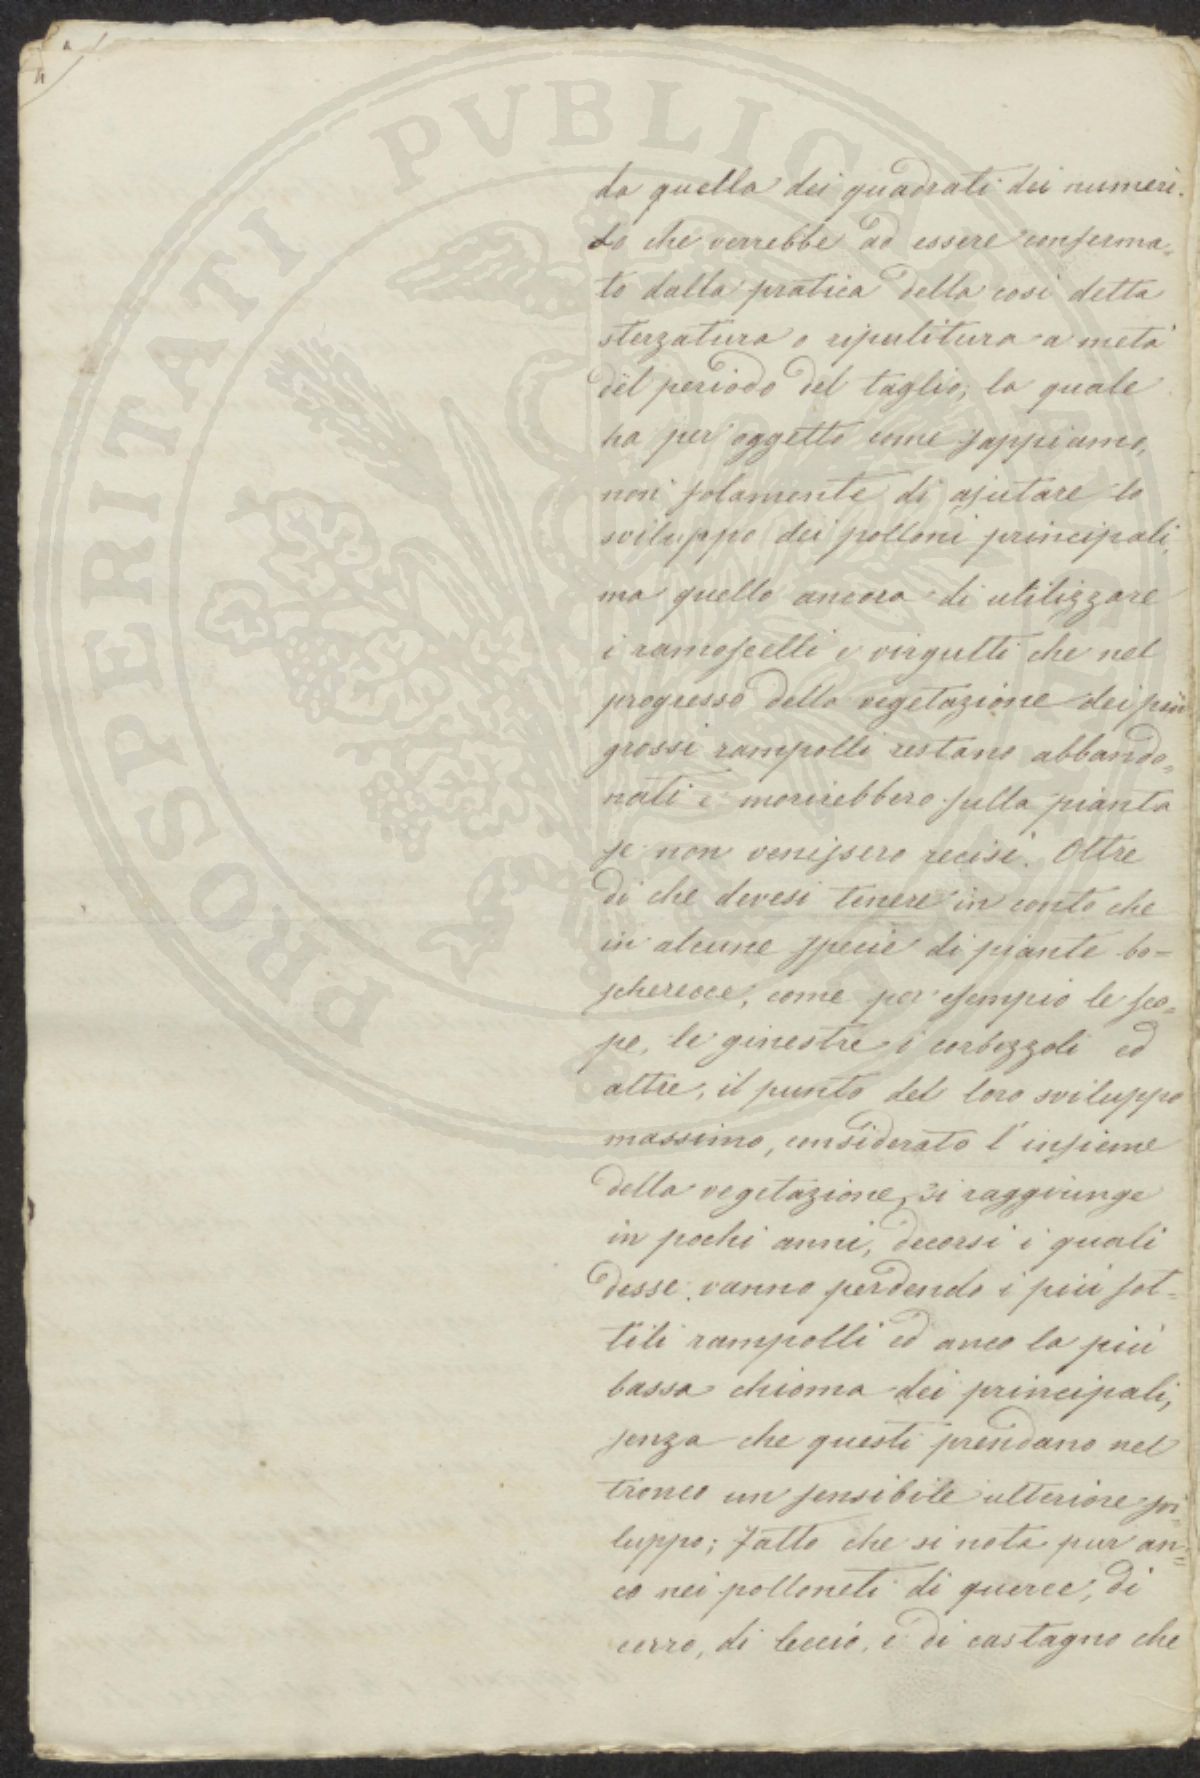 PROSPERITATI PUBLICAE
da quella dei quadrati dei numeri.
Lo che verrebbe ad essere conferma=
to dalla pratica della così detta
sterzatura o ripulitura a metà
del periodo del taglio; la quale
ha per oggetto come sappiamo,
non solamente di ajutare lo
sviluppo dei polloni principali,
ma quello ancora di utilizzare
i ramoscelli e virgulti che nel
progresso della vegetazione dei più
grossi rampolli restano abbando=
nati e morirebbero sulla pianta
se non venissero recisi. Oltre
di che devesi tenere in conto che
in alcune specie di piante bo=
scherecce, come per esempio le sco=
pe, le ginestre i corbezzoli ed
altre, il punto del loro sviluppo
massimo, considerato l'insieme
della vegetazione, si raggiunge
in pochi anni, decorsi i quali
desse vanno perdendo i più sot=
tili rampolli ed anco la più
bassa chioma dei principali,
senza che questi prendano nel
tronco un sensibile ulteriore svi=
luppo; fatto che si nota pur an=
co nei polloneti di querce, di
cerro, di leccio, e di castagno che